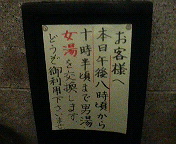 お客様へ
本日午後八時頃から
十時半頃まで男湯
女湯を交換します
どうぞ御利用下さいませ